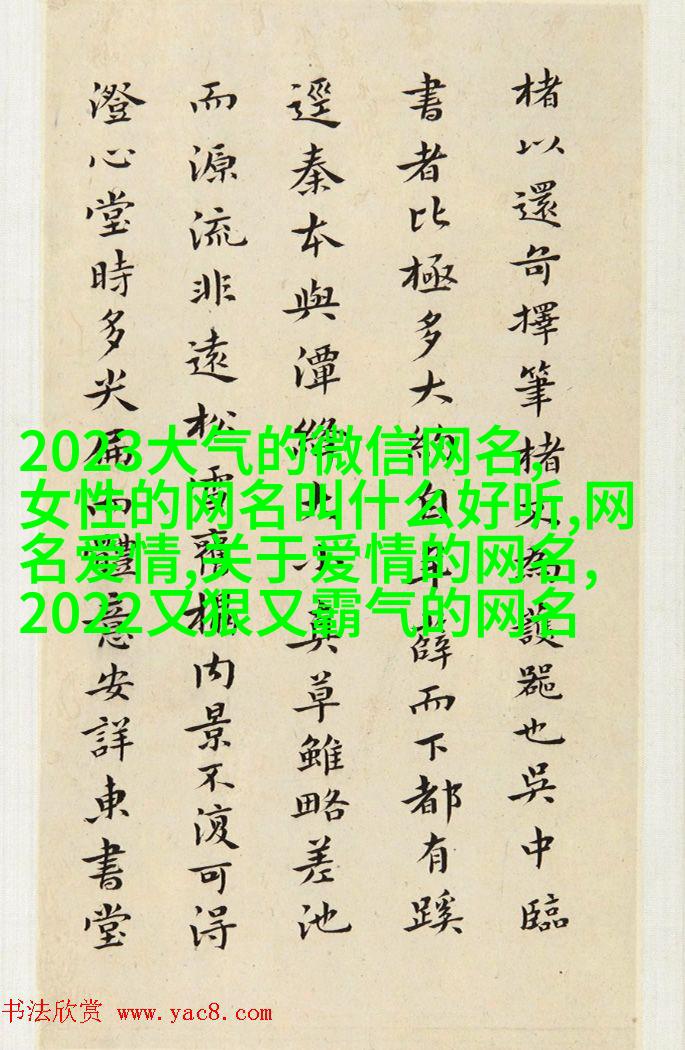 楮以還奇擇筆楮為護器也吳中臨
書者比極多大約自薛而下都有蹊
逕秦本與潭絳大真草雖略差池
而源流非遠松齋楊内景不復可得
澄心堂時多尖扁而體意安詳東書堂
2023大气的微信网名,
女性的网名叫什么好听,网
名爱情,关于爱情的网名,
2022又狠又霸气的网名
书法欣赏 www.yac8.com